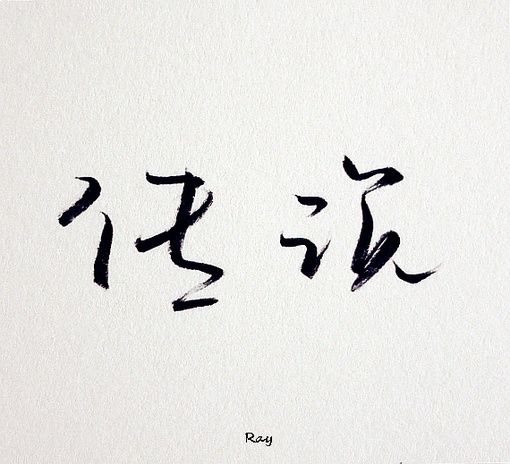 传说
Ray